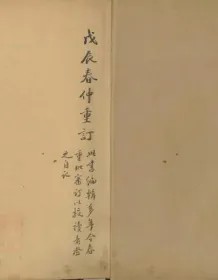 戊辰春仲重訂
此書編輯多年今春
重此審訂以被讀者
之自記